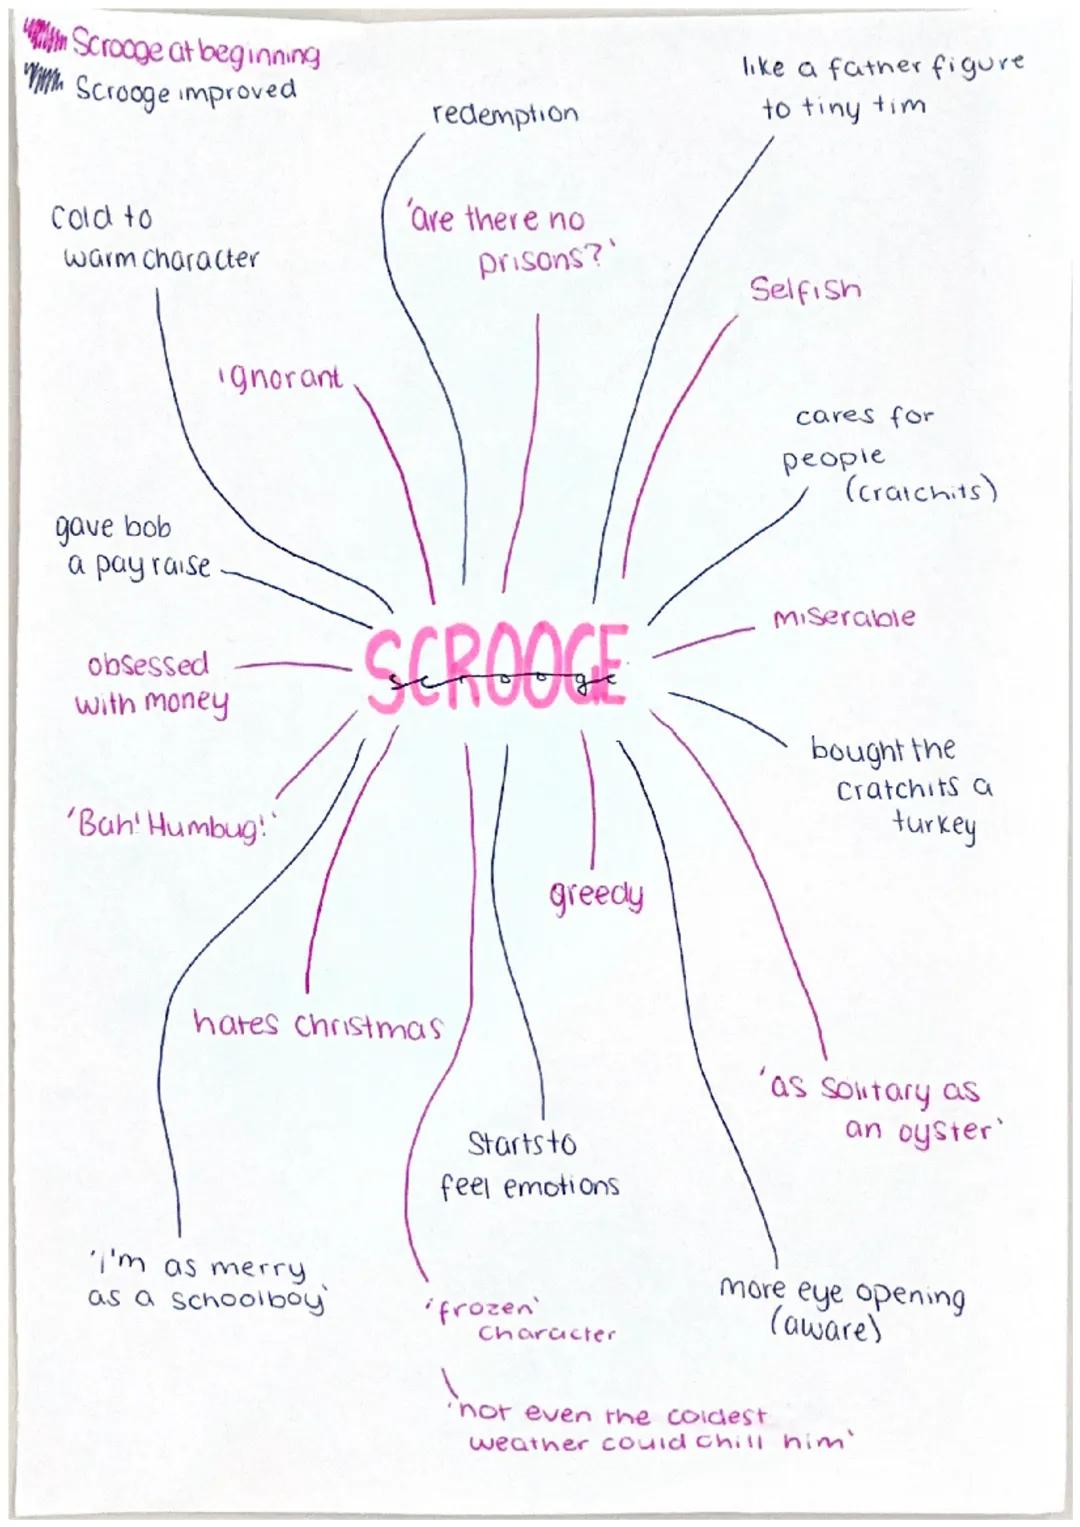 Scrooge at beginning
Scrooge improved
like a father figure
to tiny tim
redemption
'are there no
prisons?'
cold to
warm character
Selfish
ignorant
cares for
people
(cratchits)
gave bob
a pay raise
miserable
SCROOGE
scrooge
obsessed
with money
bought the
cratchits a
turkey
'Bah! Humbug!'
greedy
hates christmas
'as solitary as
an oyster'
Starts to
feel emotions
'I'm as merry
as a schoolboy'
more eye opening
(aware)
'frozen'
character
'not even the coldest
weather could chill him'